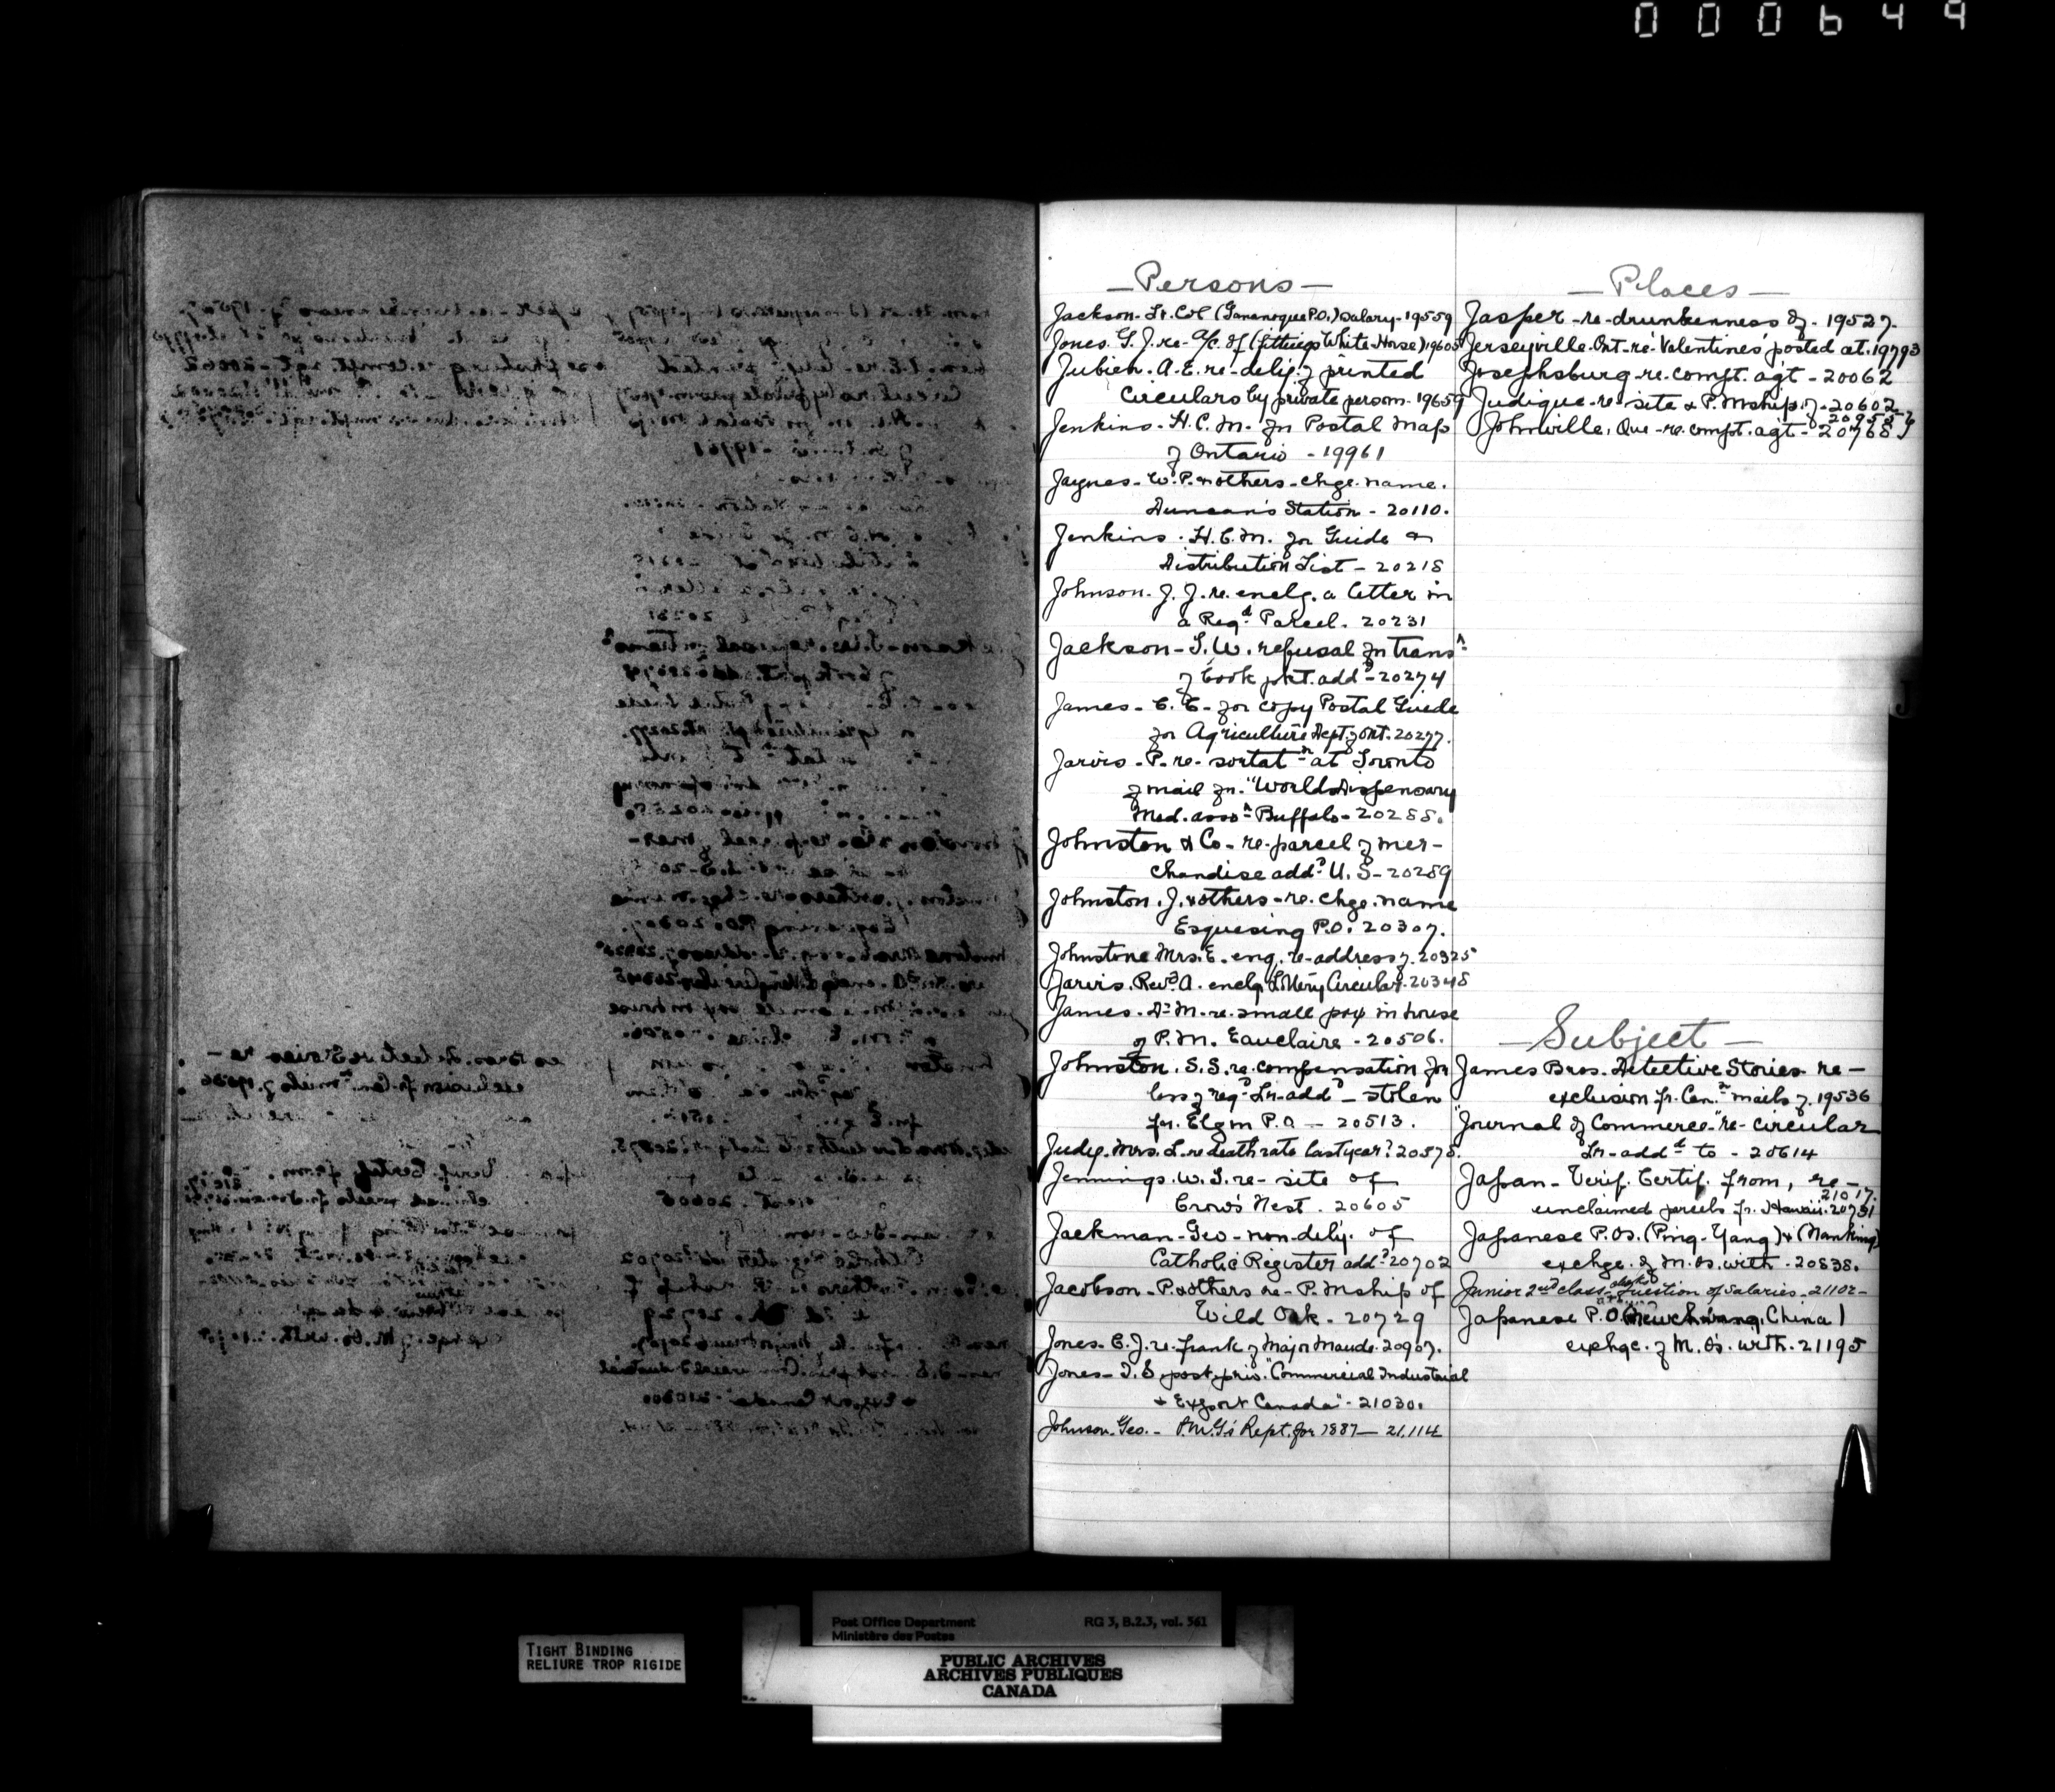 000649
Persons
Jackson. Lt. Col (Gananoque P.O.) Salary - 19559
Jones. G. J. re - a/c. of (fittings White Horse) 19605
Jubien. A. E. re - dely. of printed
Circulars by private person - 19659
Jenkins. H. C. M. for Postal Map
of Ontario - 19961
Jaynes - W. P. & others - chge. name.
Duncan's Station - 20110.
Jenkins. H. C. M. for Guide &
Distribution List - 20218
Johnson. J. J. re. enclg. a letter in
a Regd Parcel. 20231
Jackson - S. W. refusal for transn
of book pkt. addd - 20274
James - C. C. - for copy Postal Guide
for Agriculture Dept. of Ont. 20277.
Jarvis - P. re - sortatn at Toronto
of mail fr. "Worlds Dispensary
Med. assn Buffalo - 20288.
Johnston & Co - re - parcel of mer-
chandise addd U. S - 20289
Johnston. J. & others - re. chge. name
Esquesing P.O. 20307.
Johnstone Mrs. E. enq. re - address of. 20325
Jarvis. Revd A. enclg Lottery Circular. 20348
James. Dr M. re. small pox in house
of P. M. Eauclaire - 20506.
Johnston. S. S. re. compensation for
loss of regd Lr. addd - stolen
fr. Elgin P. O - 20513.
Judge. Mrs. L. re death rate last year? 20575.
Jennings. W. S. re - site of
Crow's Nest. 20605
Jackman - Geo - non - dely. of
Catholic Register addd 20702
Jacobson - P. & others re - P. Mship of
Wild Oak. 20729
Jones. C. J. re - frank of Major Maude. 20907.
Jones - T. S. post. priv. "Commercial Industrial
& Export Canada" - 21030.
Johnson. Geo. - P.M.G's Rept. for 1887 - 21,114
Places
Jasper - re - drunkenness of. - 19527.
Jerseyville. Ont - re 'Valentines' posted at. 19793
Josephsburg - re. compt. agt - 20062
Judique - re - site & P. Mship of - 20602
Johnville, Que - re. compt. agt - 20768
Subject
James Bros. Detective Stories re -
exclusion fr. Cann mails of. 19536
"Journal of Commerce" re - circular
Lr - addd to - 20614
Japan - Verif. Certif. from, re -
21017.
unclaimed parcels fr. Hawaii. 20731
Japanese P. Os. (Ping - Yang) & (Nanking)
exchge. of M. Os. with - 20838.
Junior 2nd class clerks question of salaries - 21102 -
Japanese P. O. (Newchwang, China)
exchge. of M. O's. with. 21195
J
TIGHT BINDING
RELIURE TROP RIGIDE
Post Office Department
Ministère des Postes
RG 3, B.2.3, vol. 561
PUBLIC ARCHIVES
ARCHIVES PUBLIQUES
CANADA